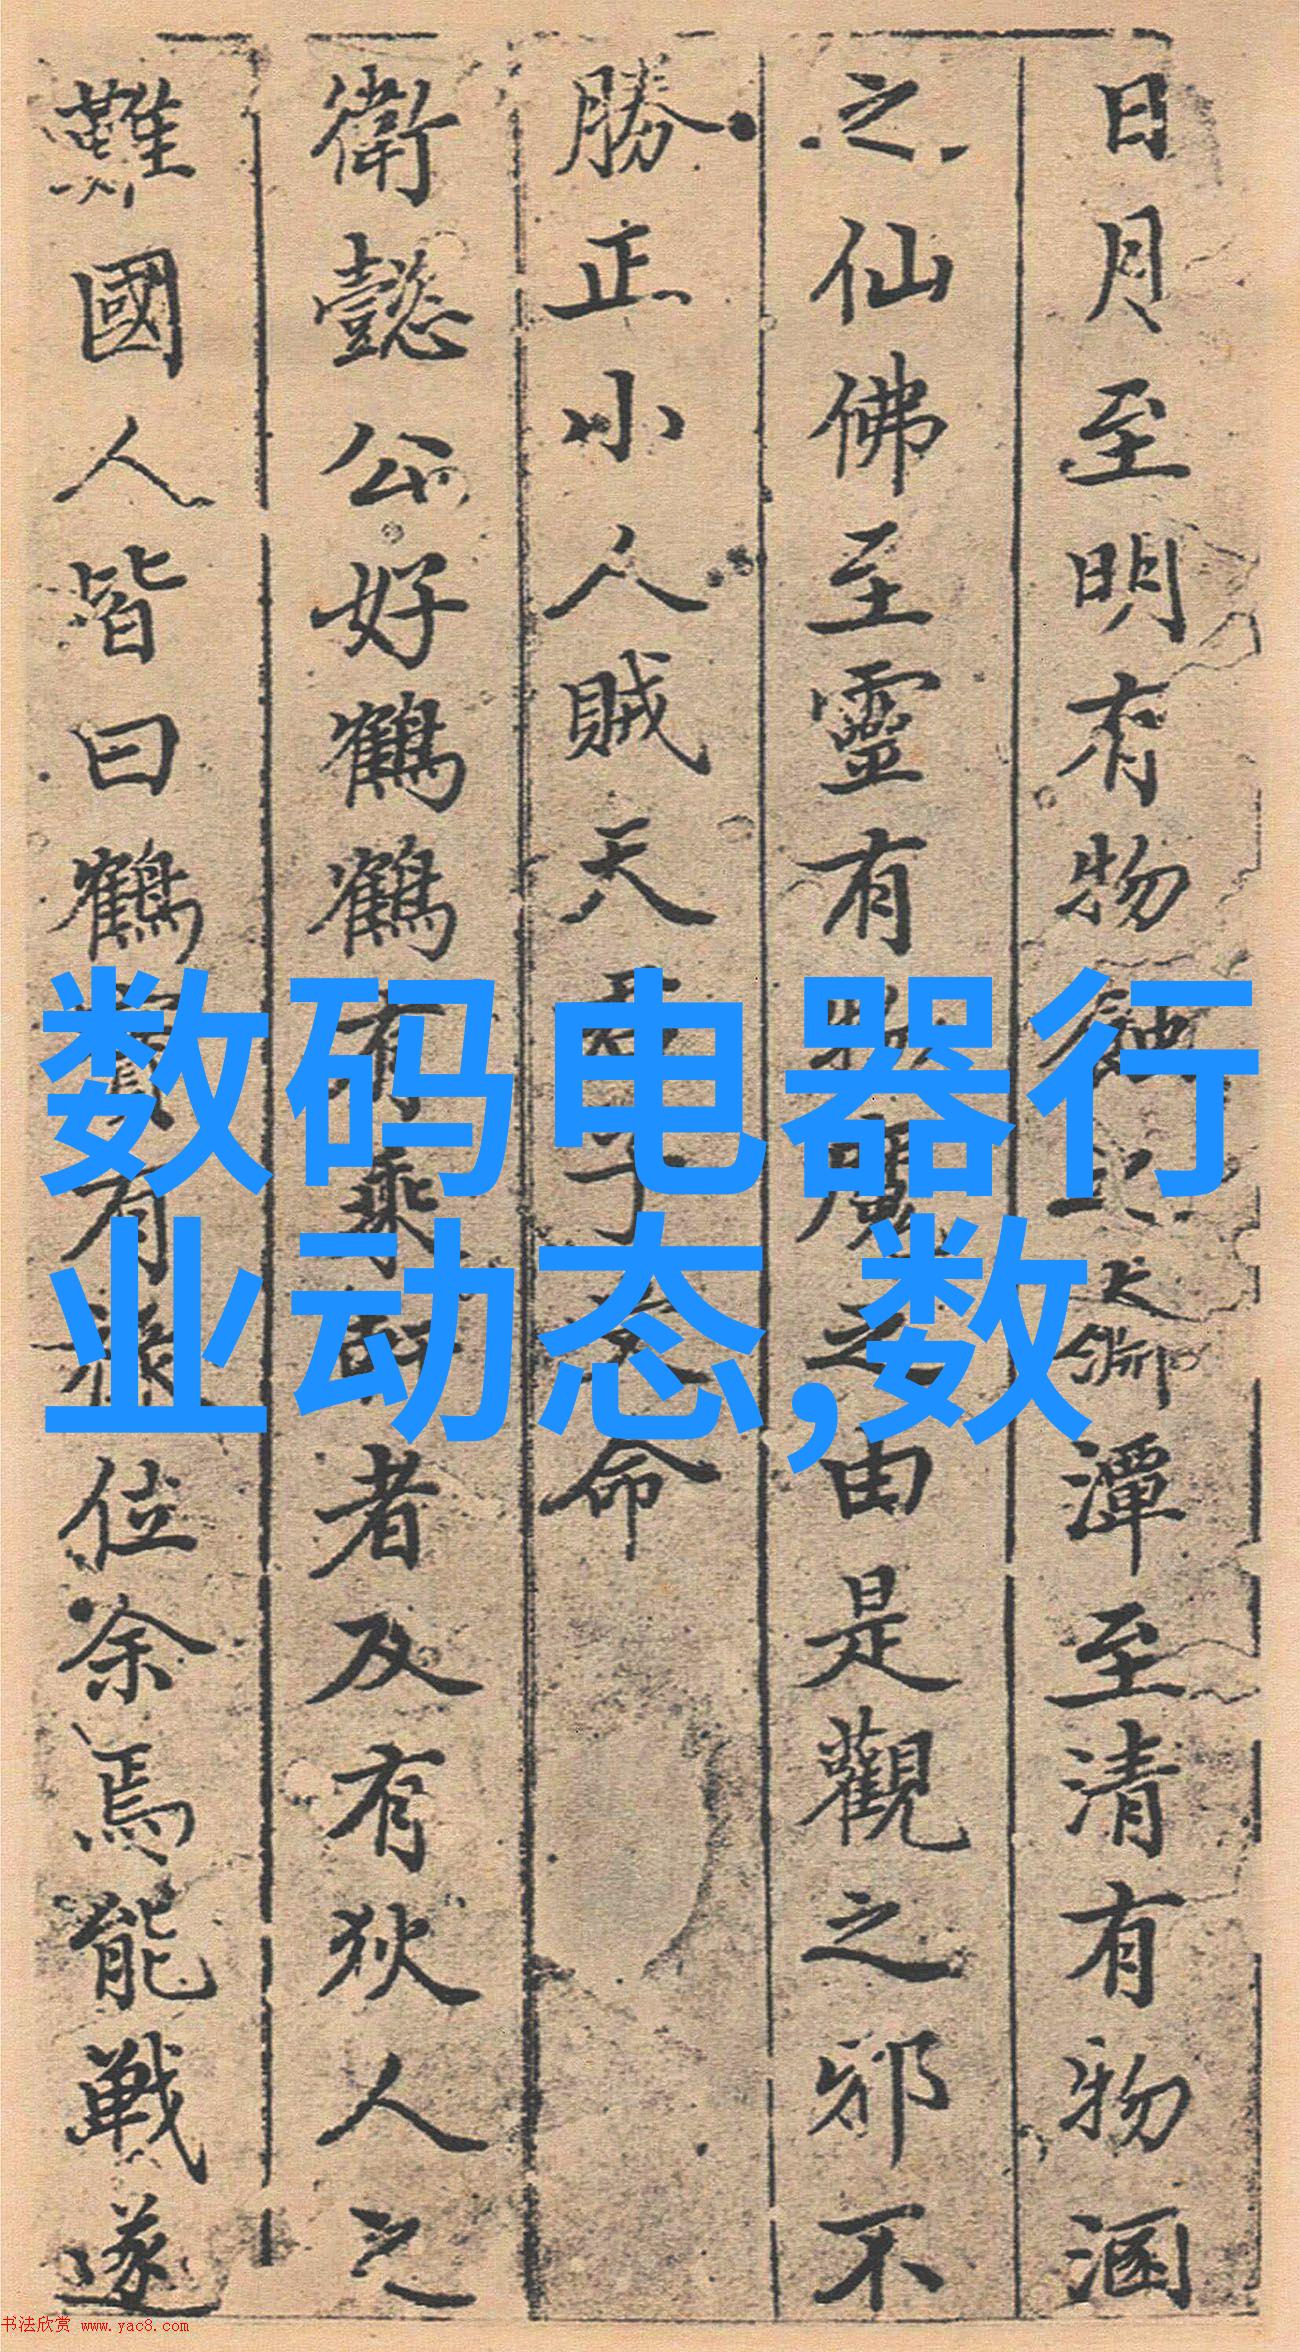 日月至明有物蝕之淵潭至清有物涵
之仙佛至靈有物魔之由是觀之邪不
勝正小人賊天君子受命
衛懿公好鶴鶴有乘軒者及有狄人之
難國人皆曰鶴實有祿位余焉能戰遂
数码电器行
业动态,数
书法欣赏 www.yac8.com